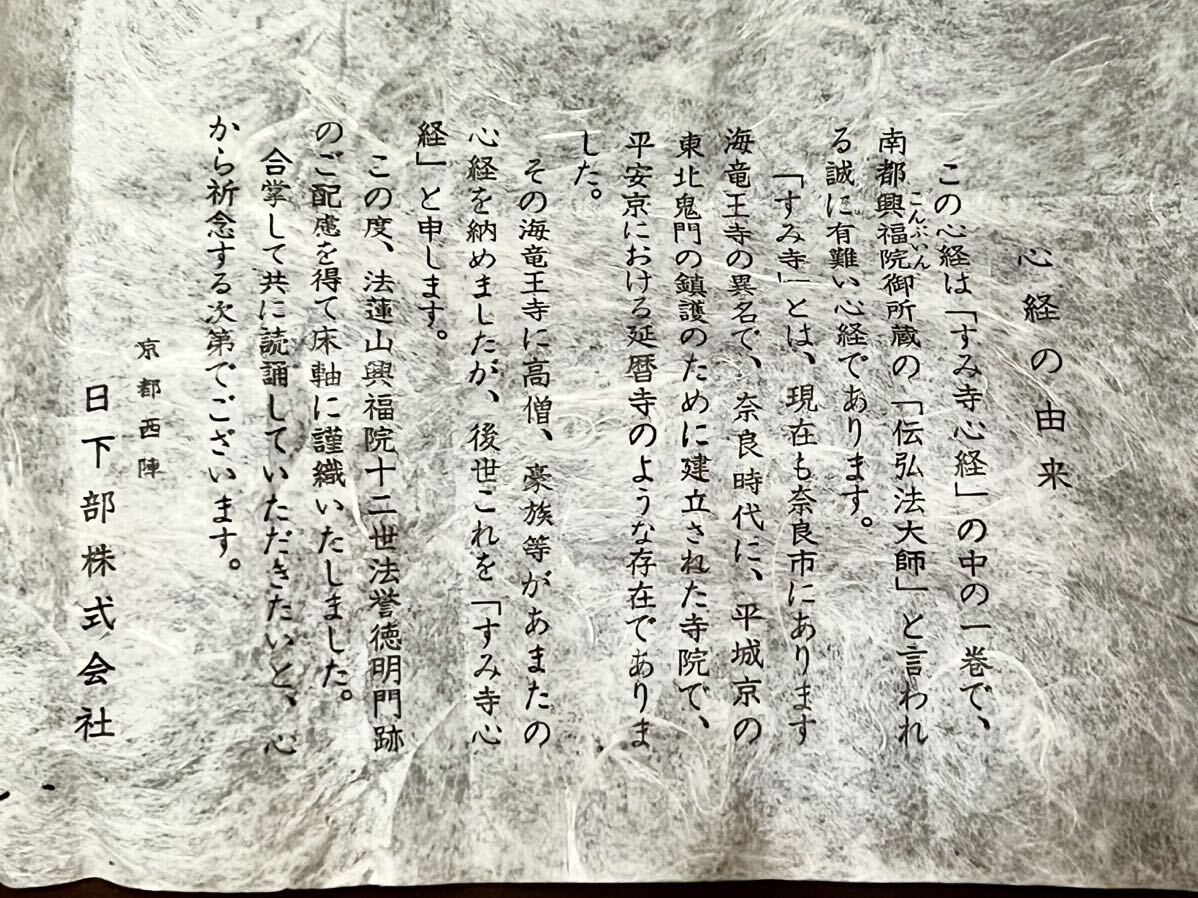 心経の由来
この心経は「すみ寺心経」の中の一巻で、
こんぶいん
南都興福院御所蔵の「伝弘法大師」と言われ
る誠に有難い心経であります。
「すみ寺」とは、現在も奈良市にあります
海竜王寺の異名で、奈良時代に、平城京の
東北鬼門の鎮護のために建立された寺院で、
平安京における延暦寺のような存在でありま
した。
その海竜王寺に高僧、豪族等があまたの
心経を納めましたが、後世これを「すみ寺心
経」と申します。
この度、法蓮山興福院十二世法誉徳明門跡
のご配慮を得て床軸に謹織いたしました。
合掌して共に読誦していただきたいと、心
から祈念する次第でございます。
京都西陣
日下部株式会社